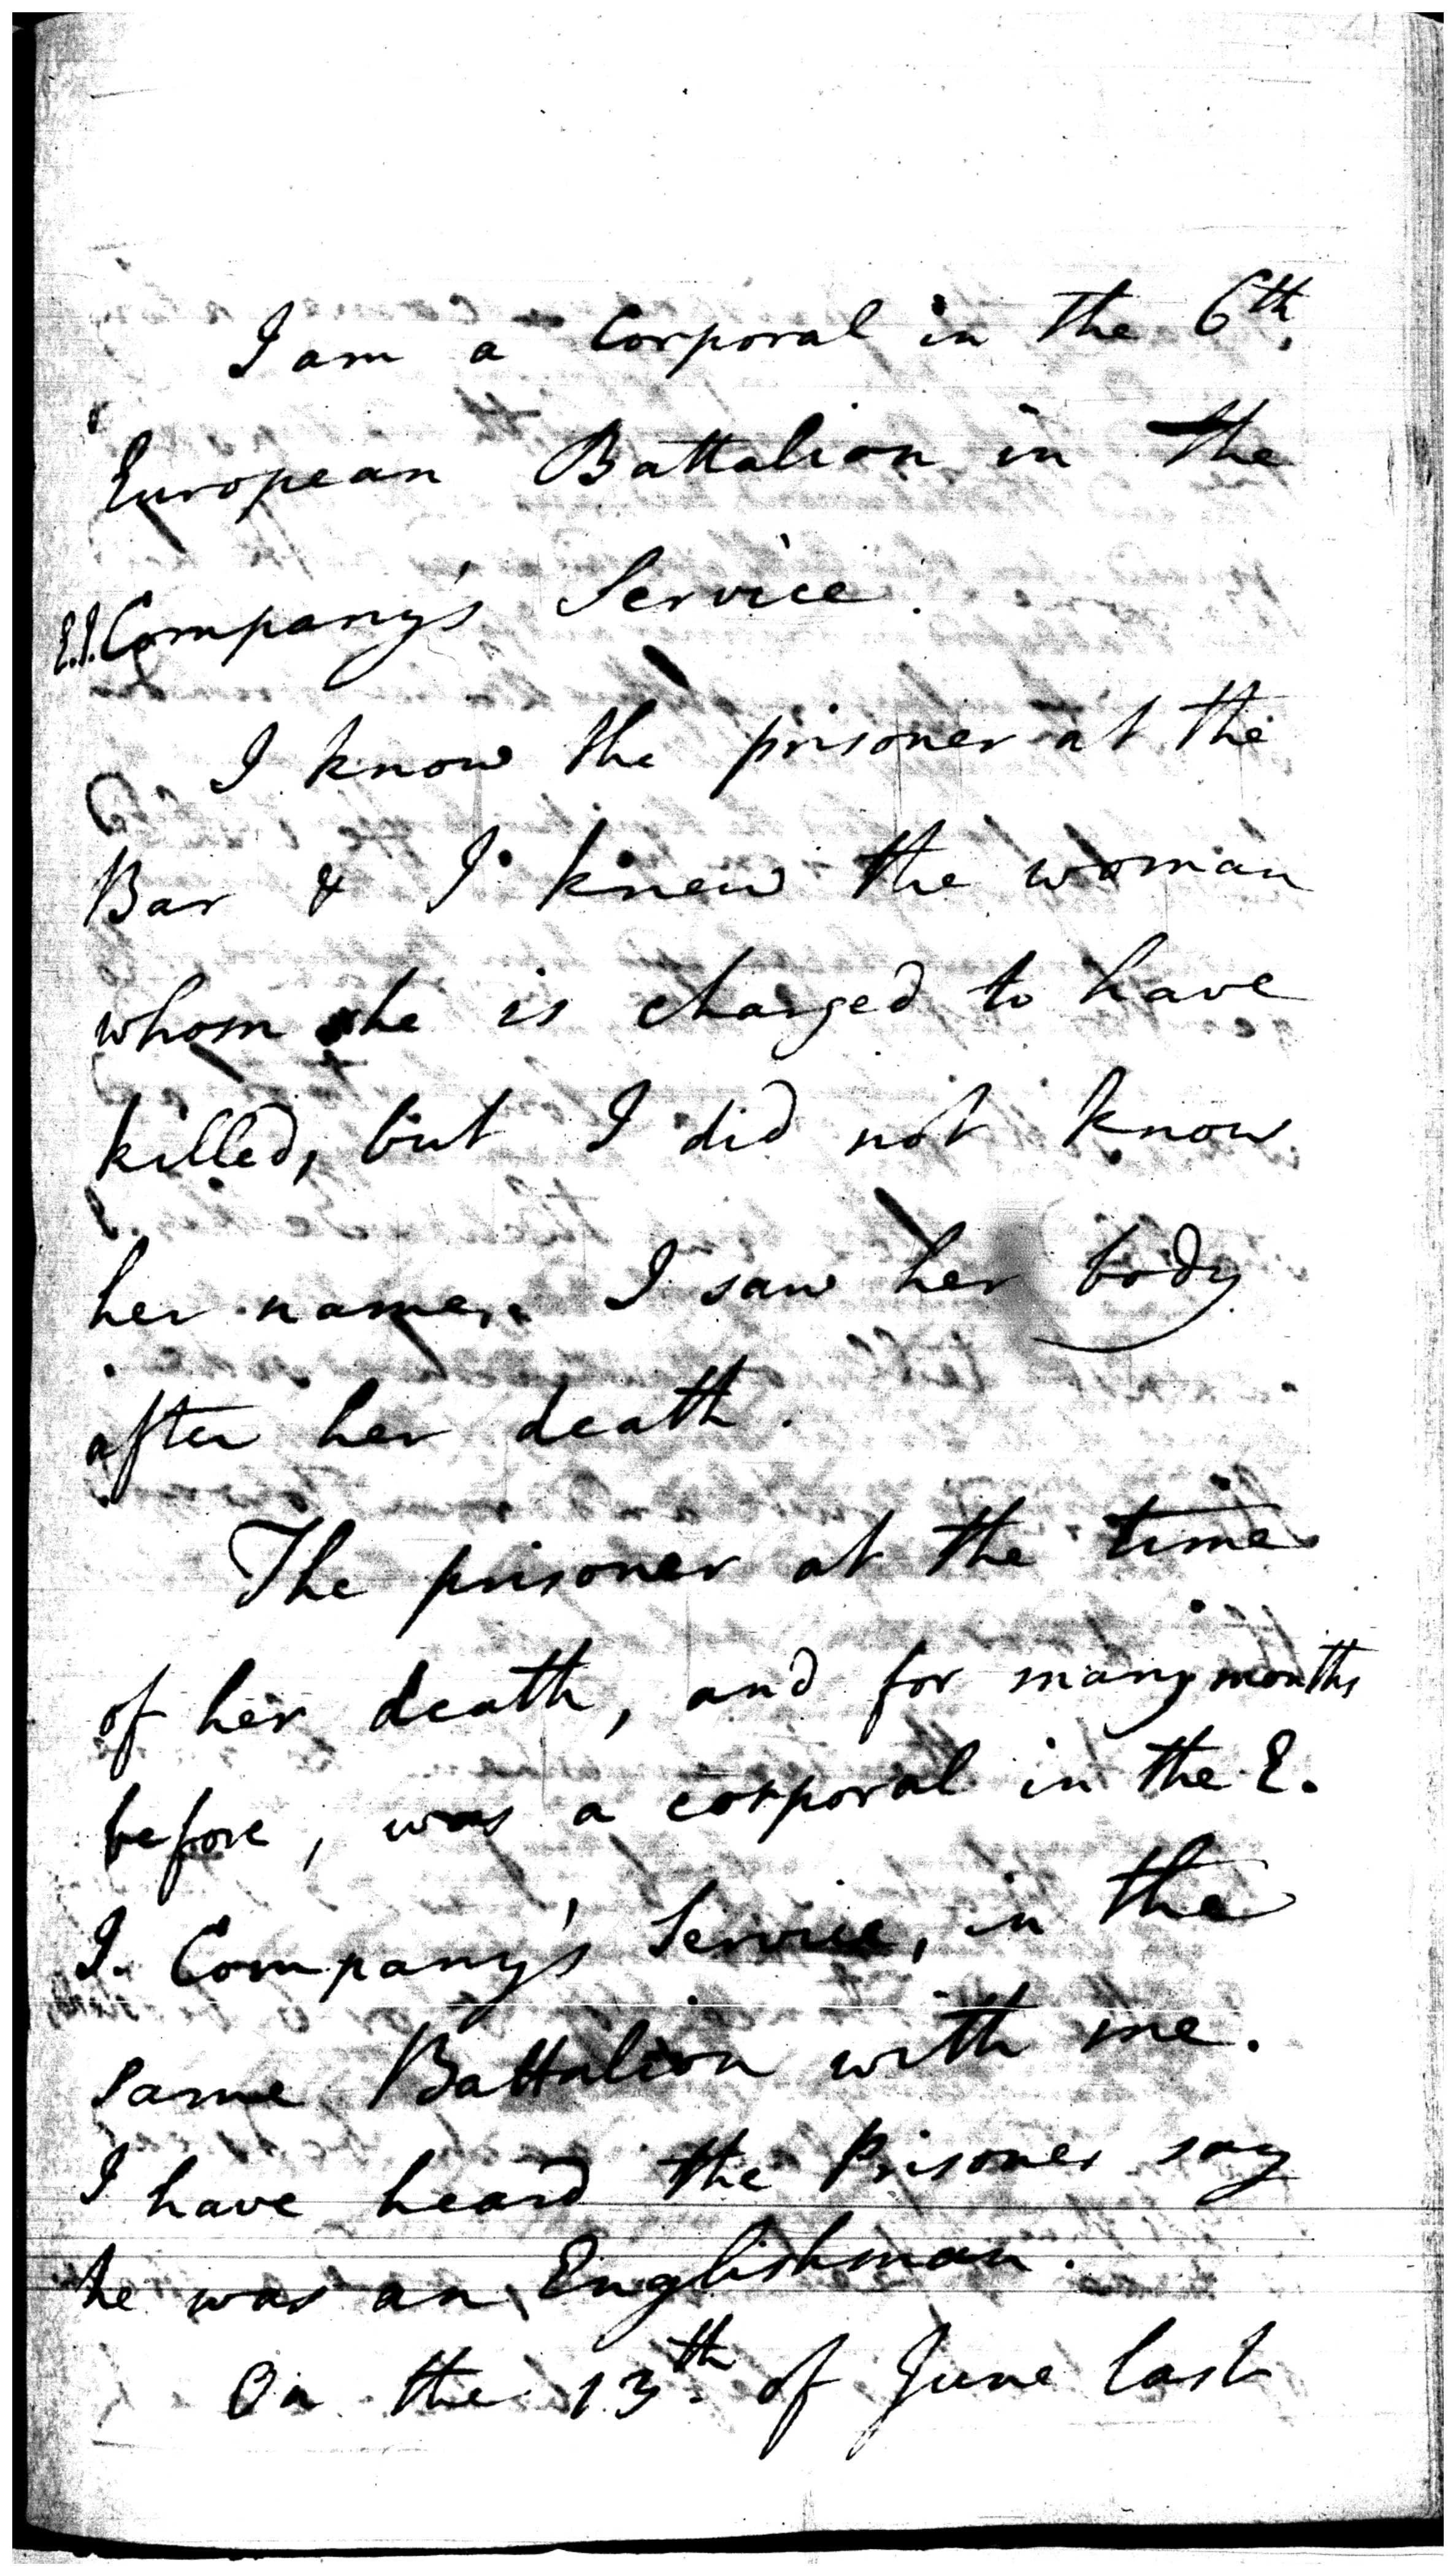 I am a Corporal in the 6th.
European Battalion in the
E.I. Company's Service.
I know the prisoner at the
Bar & I knew the woman
whom he is charged to have
killed, but I did not know
her name. I saw her body
after her death.
The prisoner at the time
of her death, and for many months
before, was a corporal in the E.
I. Company's Service, in the
same Battalion with me.
I have heard the Prisoner say
he was an Englishman.
On the 13th. of June last